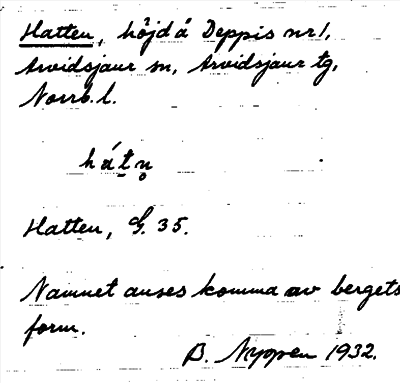 Hatten, höjd å Deppis nr 1,
Arvidsjaur sn, Arvidsjaur tg,
Norrb. l.
hát̠n̥
Hatten, G. 35.
Namnet anses komma av bergets
form.
B. Nyppen 1932.